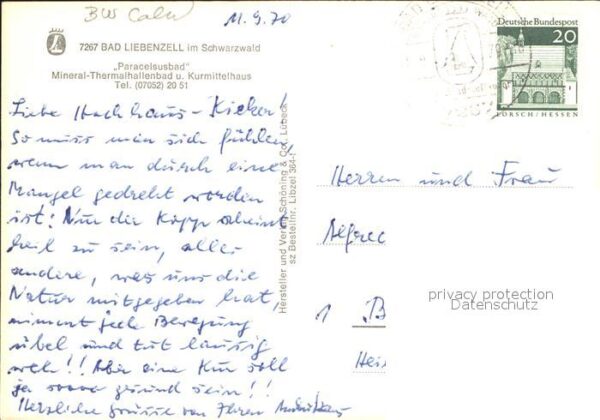 BW Calw
11.9.70
7267 BAD LIEBENZELL im Schwarzwald
„Paracelsusbad"
Mineral-Thermalhallenbad u. Kurmittelhaus
Tel. (07052) 20 51
Liebe Hochhaus-Kieker!
So muss man sich fühlen,
wenn man durch eine
Mangel gedreht worden
ist! Nur die Kopp scheint
heil zu sein, alles
andere, was uns die
Natur mitgegeben hat,
nimmt jede Bewegung
übel und tut lausig
weh!! Aber eine Kur soll
ja soooo gesund sein!!
Herzliche Grüsse von Ihren
Hersteller und Verlag Schöning & Co., Lübeck
sz Bestellnr. Libzel 364
Deutsche Bundespost
20
LORSCH/HESSEN
Herren und Frau
Alfred
1 B
Hei
privacy protection
Datenschutz